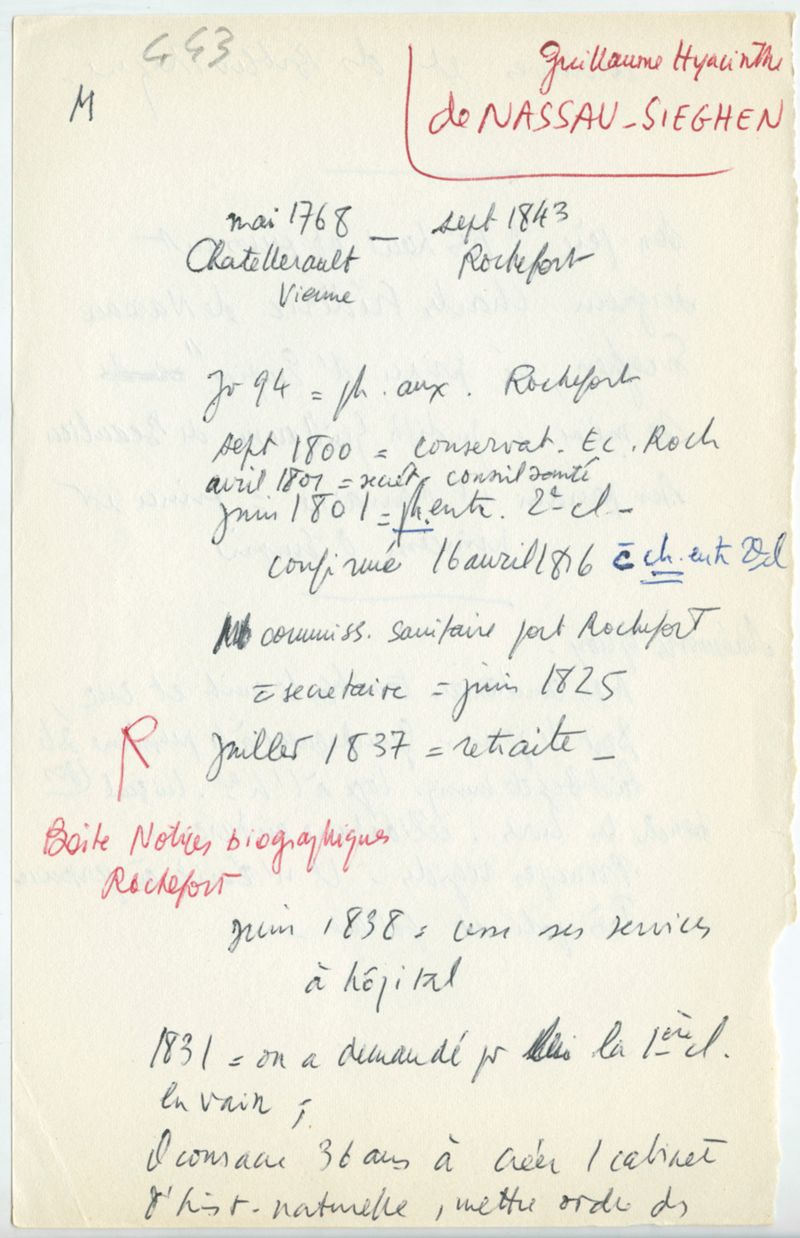 443
M
Guillaume Hyacinthe
de NASSAU-SIEGHEN
mai 1768 — sept 1843
Chatellerault Rochefort
Vienne
Jr 94 = ph. aux. Rochefort
sept 1800 = conservat. Ec. Roch
avril 1801 = secrét conseil santé
juin 1801 = ph. entr. 2e cl -
confirmé 16 avril 1816 = ch. entr 2e cl
commiss. sanitaire port Rochefort
= secretaire = juin 1825
R
Juiller 1837 = retraite -
Boite Notices biographiques
Rochefort
Juin 1838 = cesse ses services
à hôpital
1831 = on a demandé pr lui la 1ère cl.
en vain ;
Il consacre 36 ans à créer 1 cabinet
d'hist. naturelle, mettre ordre ds